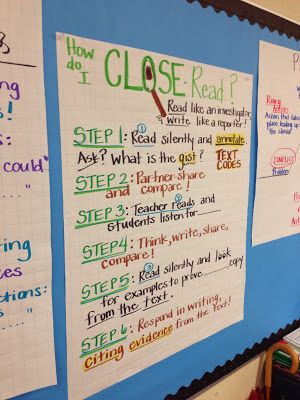 How do I CLOSE Read?
Read like an investigator
Write like a reporter!
STEP 1: ① Read silently and annotate
Ask? What is the gist? TEXT CODES
STEP 2: Partner-share
and compare!
STEP 3: ② Teacher reads and
students listen for
STEP 4: Think, write, share,
compare!
STEP 5: ③ Read silently and look
for examples to prove copy
from the text.
STEP 6: Respond in writing,
citing evidence from the text!
could"
Rising
Action:
Action that
place leading
climax
CONFLICT
Problem